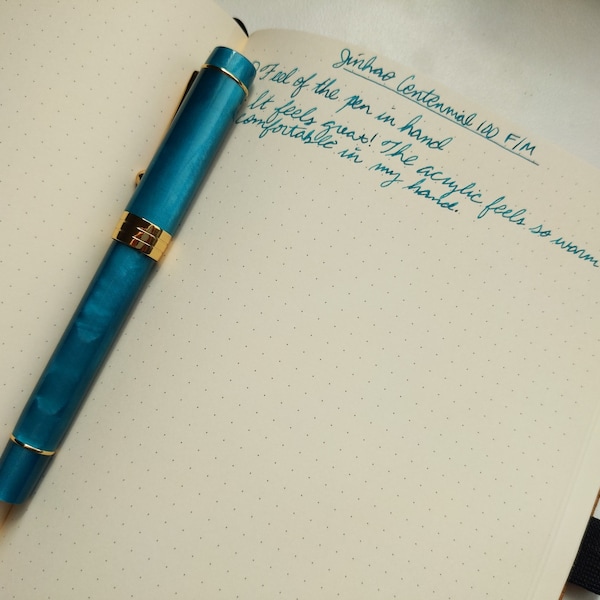 Jinhao Centennial 100 F/M
Feel of the pen in hand
It feels great! The acrylic feels so warm
comfortable in my hand.